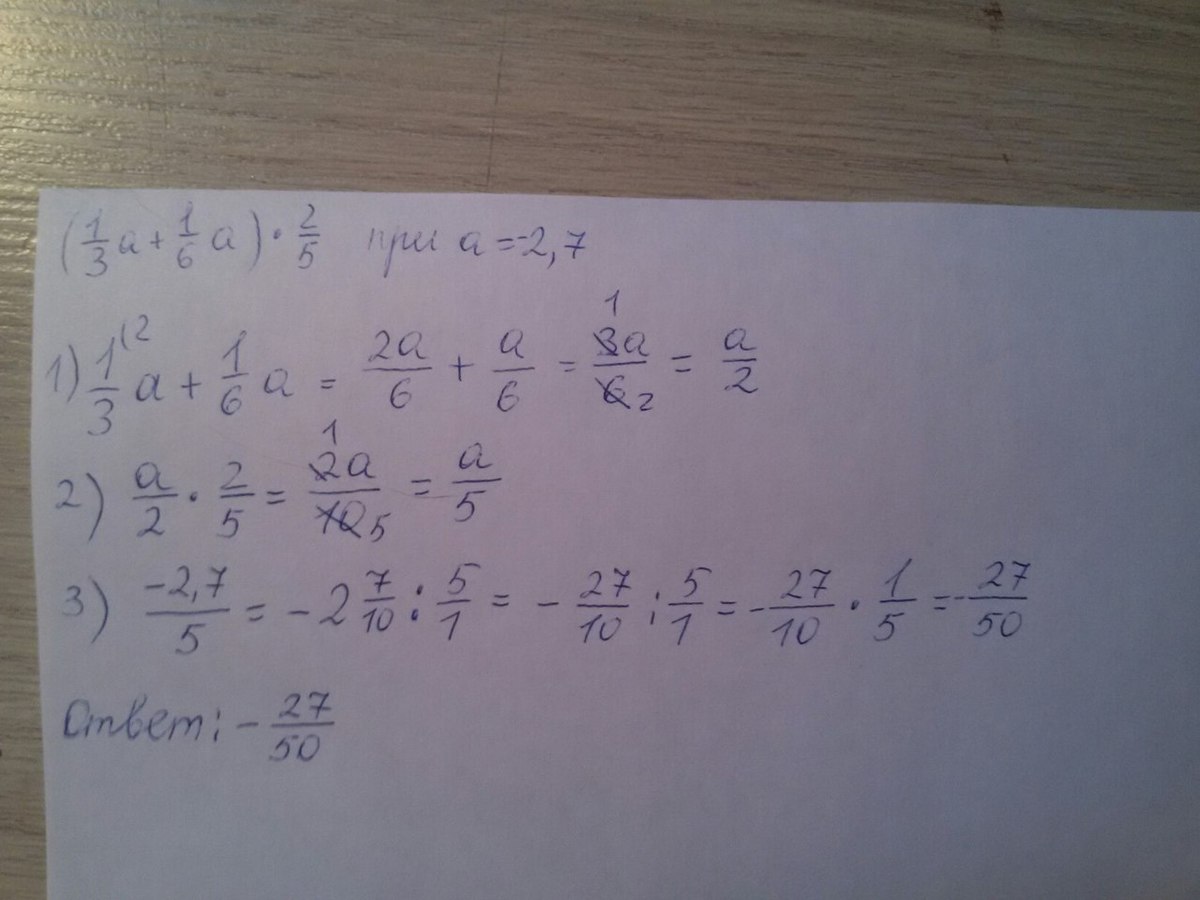 (1/3 a + 1/6 a) · 2/5 при a = -2,7
1) 1/3 (2 a + 1/6 a = 2a/6 + a/6 = 3a/6 1 2 = a/2
2) a/2 · 2/5 = 2a/10 1 5 = a/5
3) -2,7/5 = -2 7/10 : 5/1 = - 27/10 : 5/1 = - 27/10 · 1/5 = - 27/50
Ответ: - 27/50